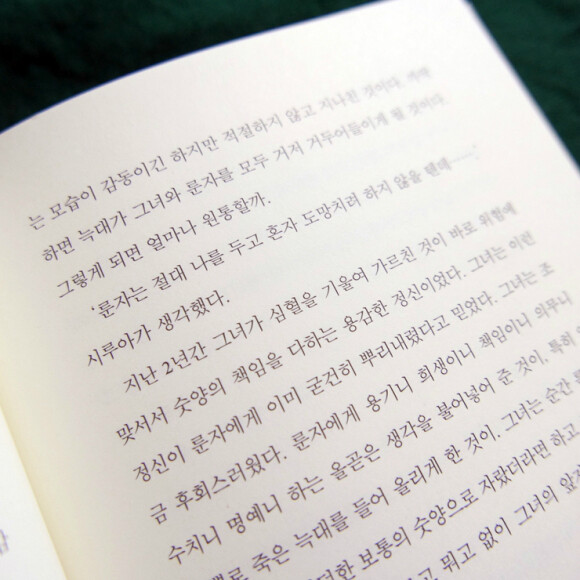 는 모습이 감동이긴 하지만 적절하지 않고 지나친 것이다. 자칫
하면 늑대가 그녀와 룬자를 모두 거저 거두어들이게 될 것이다.
그렇게 되면 얼마나 원통할까.
‘룬자는 절대 나를 두고 혼자 도망치려 하지 않을 텐데──.’
시루아가 생각했다.
지난 2년간 그녀가 심혈을 기울여 가르친 것이 바로 위험에
맞서서 숫양의 책임을 다하는 용감한 정신이었다. 그녀는 이런
정신이 룬자에게 이미 굳건히 뿌리내렸다고 믿었다. 그녀는 조
금 후회스러웠다. 룬자에게 용기니 희생이니 책임이니 의무니
수치니 명예니 하는 올곧은 생각을 불어넣어 준 것이. 특히
뿔로 죽은 늑대를 들어 올리게 한 것이. 그녀는 순간
보통의 숫양으로 자랐더라면 하고
고 뭐고 없이 그녀의